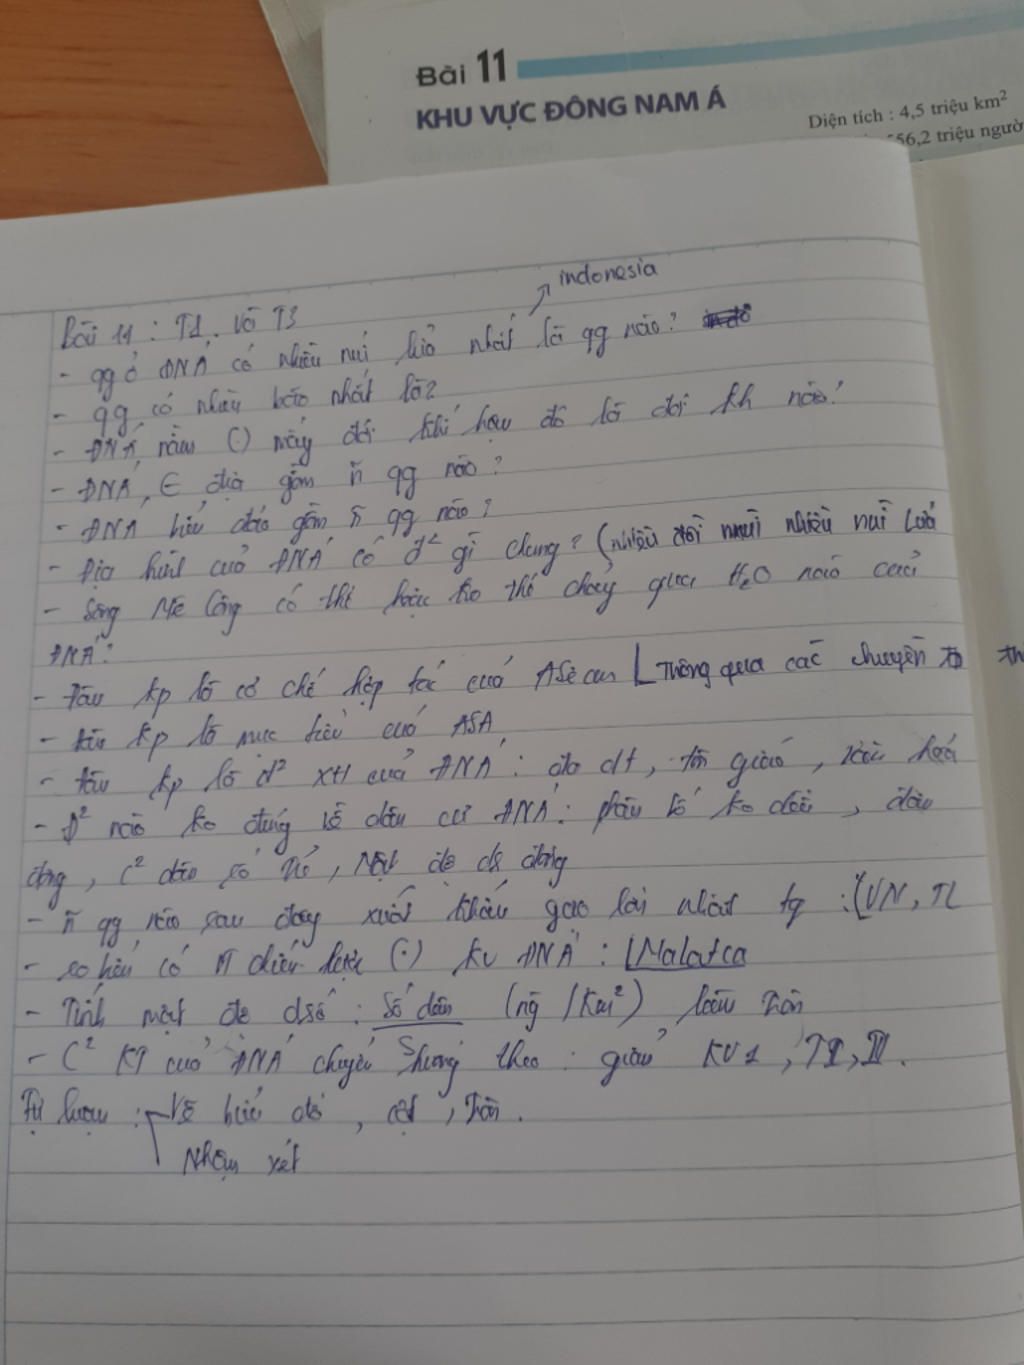 Bài 11
KHU VỰC ĐÔNG NAM Á
Diện tích : 4,5 triệu km²
56,2 triệu ngườ
indonesia
Bài 11 : T1. Và T3
- qg ở ĐNÁ có nhiều núi lửa nhất là qg nào?
- qg có nhiều bão nhất là?
- ĐNÁ nằm (.) mấy đới khí hậu đó là đới kh nào?
- ĐNÁ, lđ địa gồm ~n qg nào?
- ĐNÁ biển đảo gồm ~n qg nào?
- Địa hình của ĐNÁ có đ² gì chung? (nhiều đồi núi nhiều núi Lửa
- Sông Mê Công có thể hoặc ko thể chảy qua H₂O nào của
ĐNÁ?
- đâu kp là cơ chế hợp tác của ASean Thông qua các chuyên th
- đâu kp là mục tiêu của ASA
- đâu kp là đ² XH của ĐNÁ : đa dt, tôn giáo, văn hoá
- Đ² nào ko đúng về dân cư ĐNÁ : phân bố ko đều, dân
đông, C² dân số trẻ, Mật độ ds đông
- ~n qg nào sau đây xuất khẩu gạo lớn nhất tg : (VN, TL
- eo biển có chiến lược (.) kv ĐNÁ : Malatca
- Tính mật độ dsố : Số dân (ng /Km²) làm tròn
- C² KT của ĐNÁ chuyển hướng theo : giảm KV1, T II, III.
Tự luận : Vẽ biểu đồ, cột, tròn.
Nhận xét